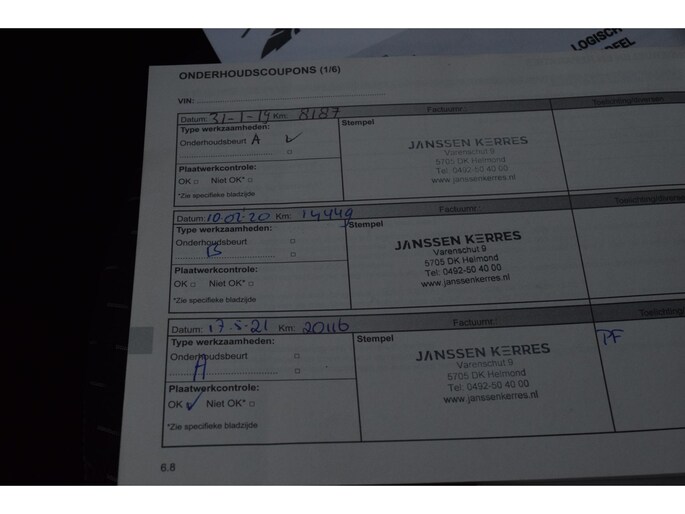 LOGISCH
ONDERHOUDSCOUPONS (1/6)
VIN:
Datum: 31-1-19 Km: 8187 Factuurnr.:
Type werkzaamheden: Stempel
Onderhoudsbeurt A ✓
JANSSEN KERRES
Varenschut 9
5705 DK Helmond
Tel. 0492-50 40 00
www.janssenkerres.nl
Plaatwerkcontrole:
OK □ Niet OK* □
*Zie specifieke bladzijde
Datum: 10-02-20 Km: 14449 Factuurnr.:
Type werkzaamheden: Stempel
Onderhoudsbeurt □
B □
JANSSEN KERRES
Varenschut 9
5705 DK Helmond
Tel: 0492-50 40 00
www.janssenkerres.nl
Plaatwerkcontrole:
OK □ Niet OK* □
*Zie specifieke bladzijde
Datum: 17-5-21 Km: 20116 Factuurnr.: Toelichting
Type werkzaamheden: Stempel PF
Onderhoudsbeurt □
A □
JANSSEN KERRES
Varenschut 9
5705 DK Helmond
Tel: 0492-50 40 00
www.janssenkerres.nl
Plaatwerkcontrole:
OK ✓ Niet OK* □
*Zie specifieke bladzijde
6.8